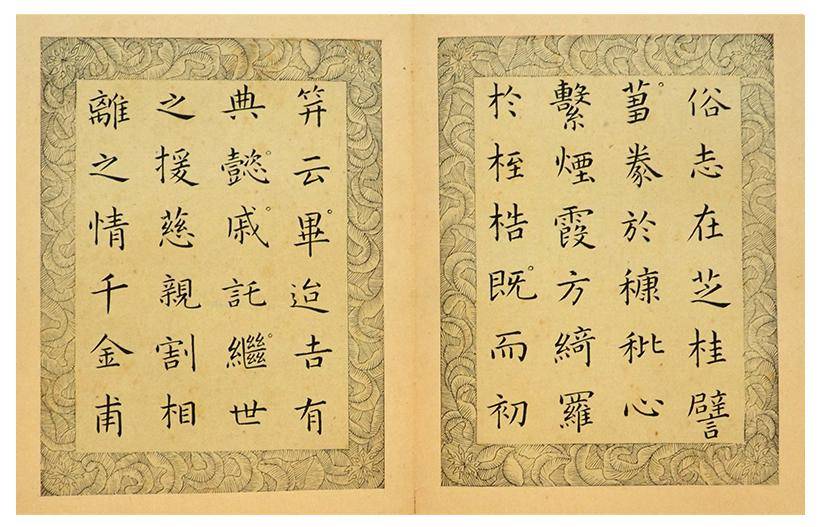 俗志在芝桂譬
蒭豢於糠秕心
繫煙霞方綺羅
扵桎梏既而初
笄云畢迨吉有
典懿戚託繼世
之援慈親割相
離之情千金甫